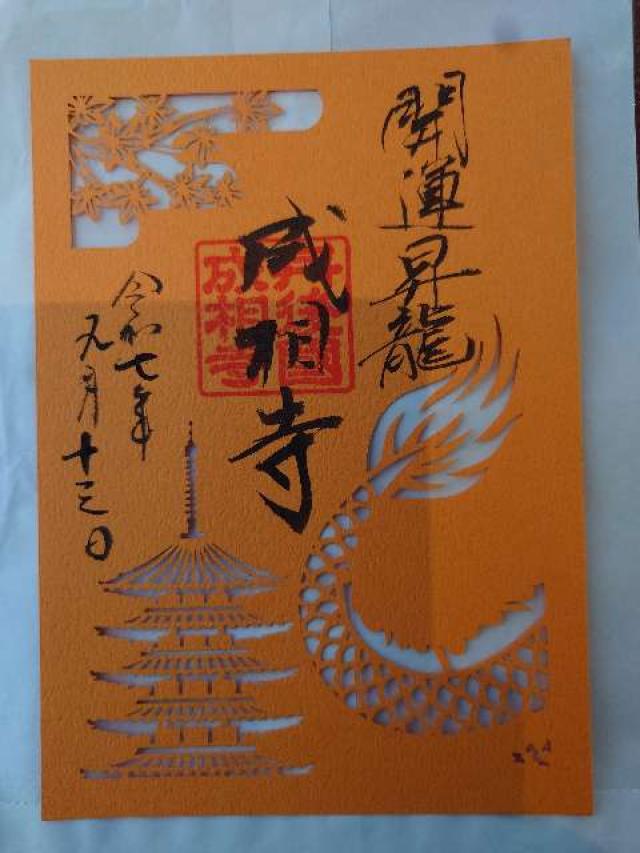 開運昇龍
成相寺
成相寺
令和七年
九月十三日